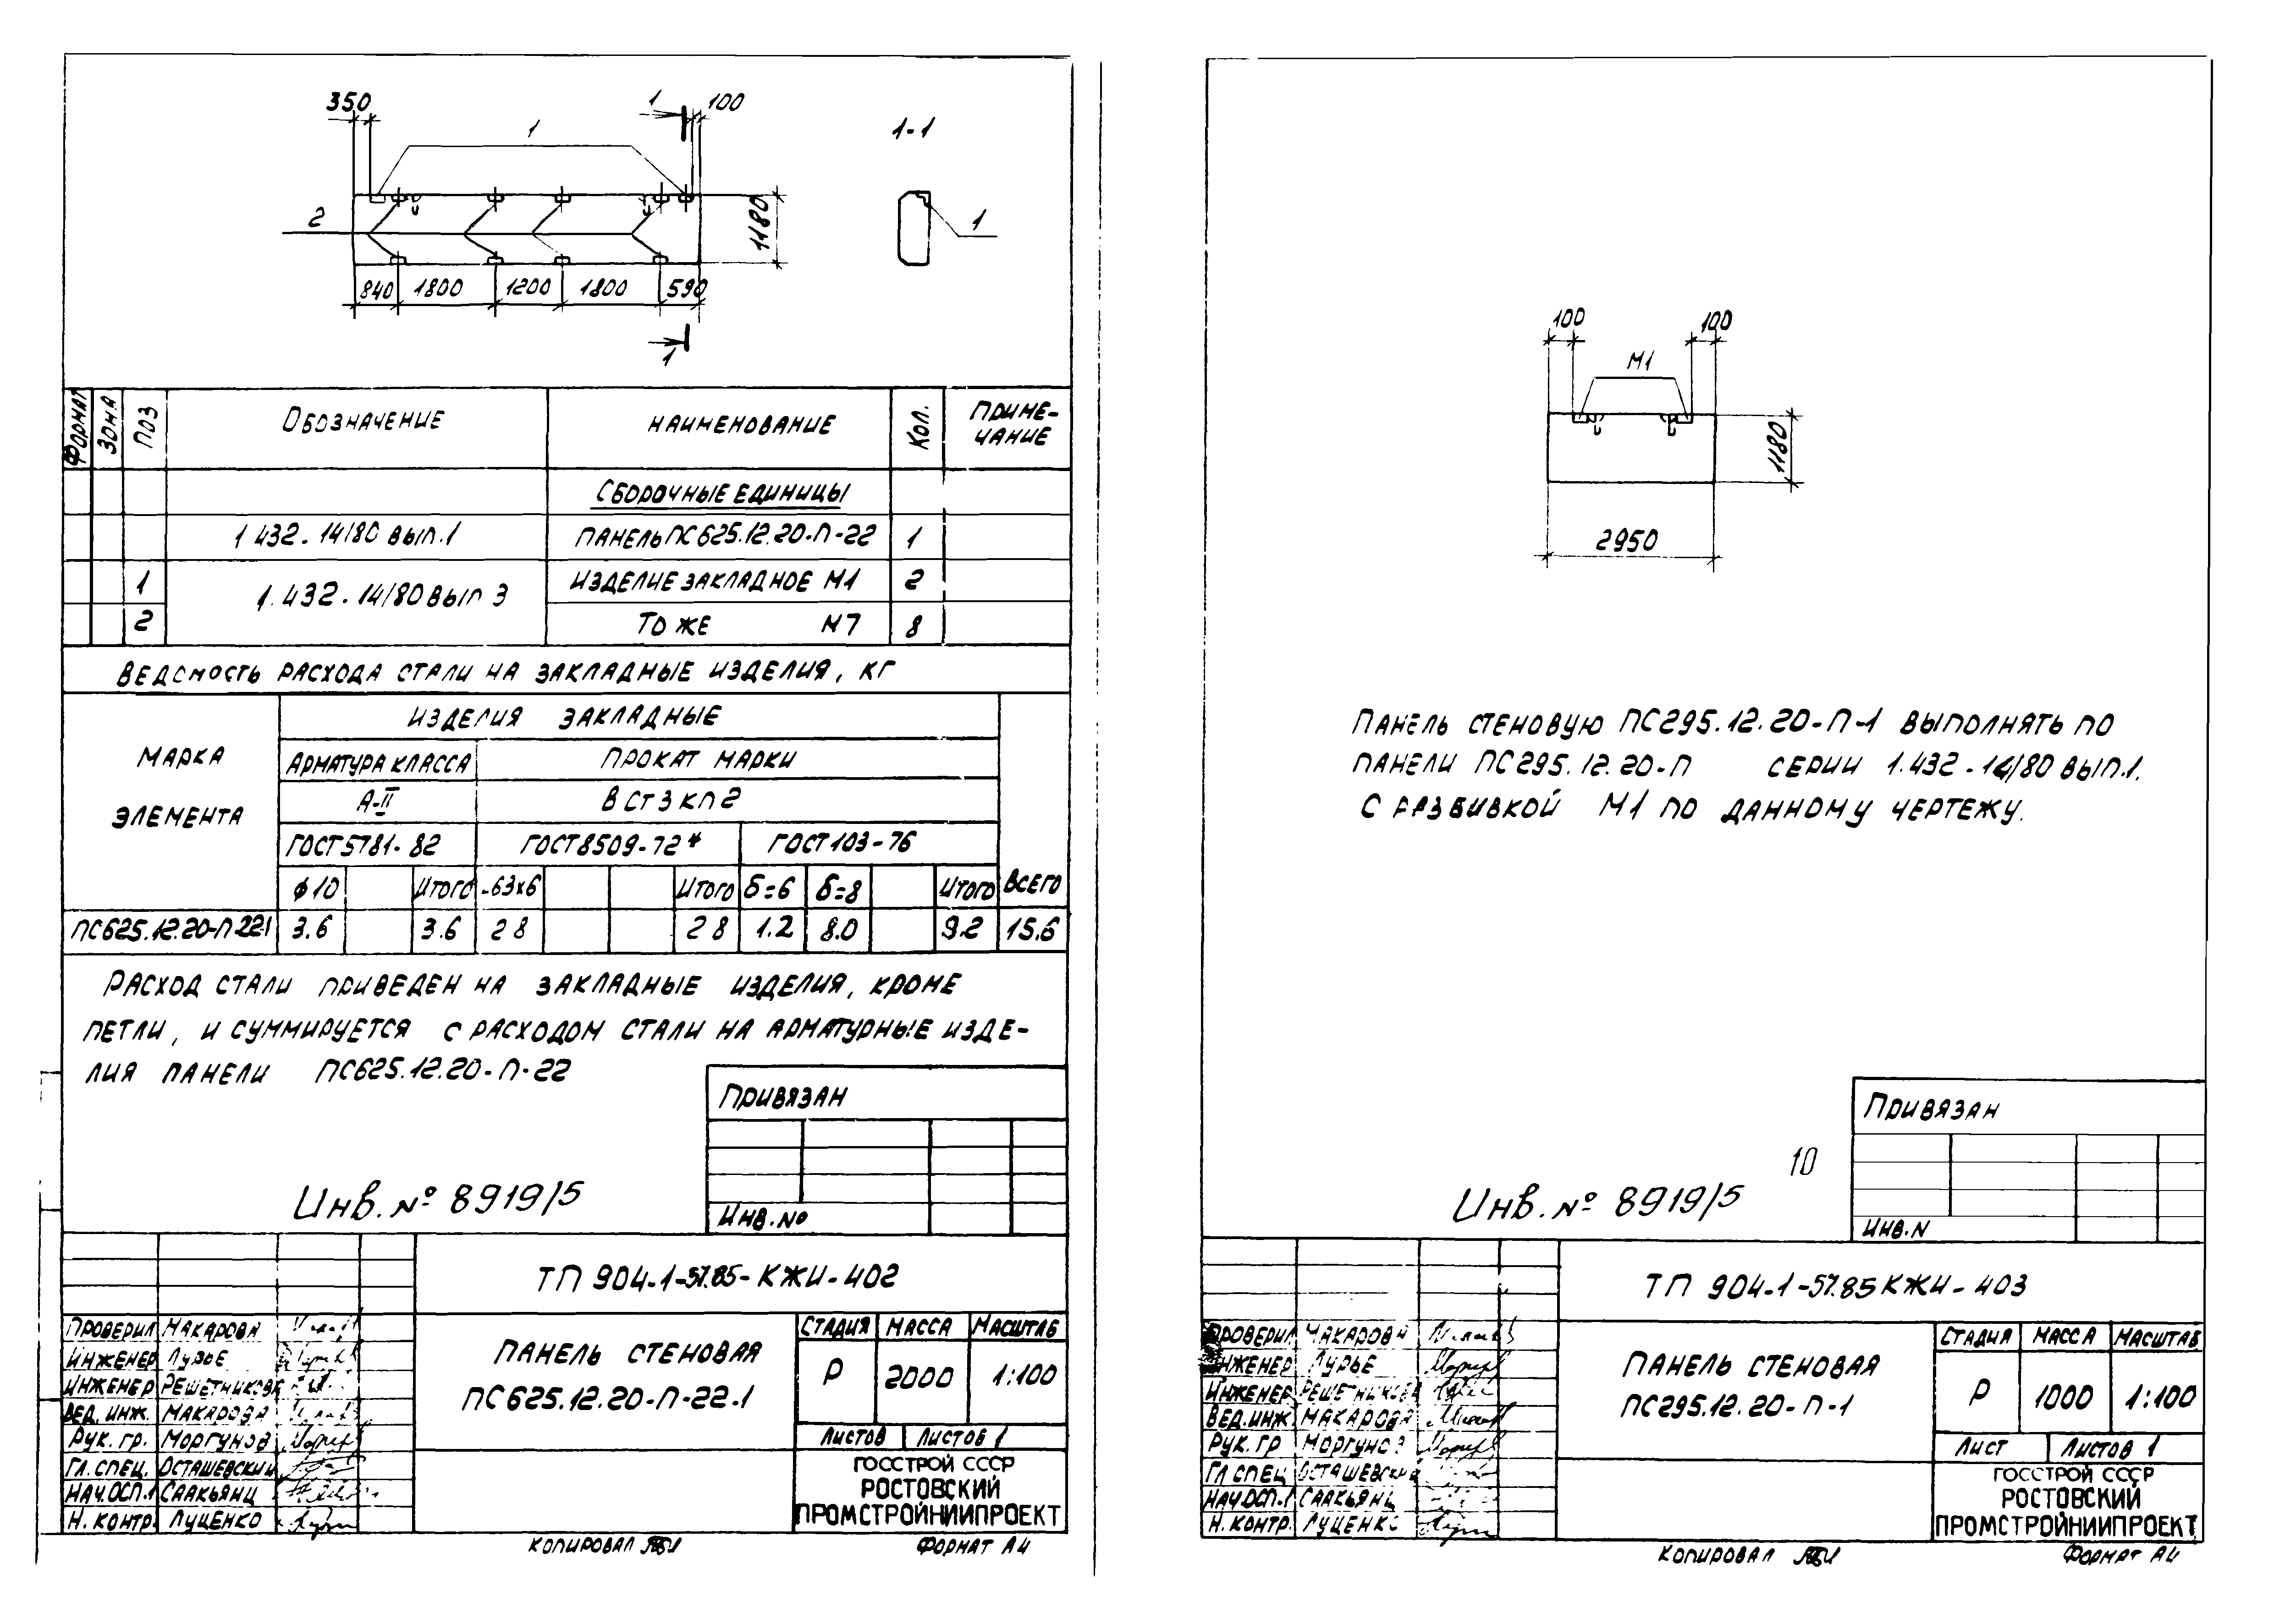 350
1
100
1
1-1
2
1180
1
840 1800 1200 1800 590
1
Формат Зона Поз Обозначение Наименование Кол. Приме-
чание
Сборочные единицы
1 432-14/80 вып.1 Панель ПС625.12.20-П-22 1
1 Изделие закладное М1 2
1.432-14/80 вып 3
2 То же М7 8
Ведомость расхода стали на закладные изделия, кг
Изделия закладные
Марка
элемента
Арматура класса Прокат марки
А-II ВСт3кп2
ГОСТ 5781-82 ГОСТ 8509-72* ГОСТ 103-76
ф10 Итого -63х6 Итого б=6 б=8 Итого Всего
ПС625.12.20-П-22.1 3.6 3.6 2 8 2 8 1.2 8.0 9.2 15.6
Расход стали приведен на закладные изделия, кроме
петли, и суммируется с расходом стали на арматурные изде-
лия панели ПС625.12.20-П-22
Привязан
Инв. № 8919/5
Инв. №
ТП 904-1-57.85-КЖИ-402
Проверил Макарова
Инженер Лурье
Инженер Решетникова
Вед. инж. Макарова
Рук. гр. Моргунов
Гл. спец. Осташевский
Нач.ОСП.1 Саакьянц
Н. контр. Луценко
Панель стеновая
ПС625.12.20-П-22.1
Стадия Масса Масштаб
Р 2000 1:100
Листов Листов 1
ГОССТРОЙ СССР
РОСТОВСКИЙ
ПРОМСТРОЙНИИПРОЕКТ
Копировал
Формат А4
100 100
М1
1180
2950
Панель стеновую ПС295.12.20-П-1 выполнять по
панели ПС295.12.20-П серии 1.432-14/80 вып.1.
с разбивкой М1 по данному чертежу.
Привязан
10
Инв. № 8919/5
Инв. N
ТП 904-1-57.85 КЖИ-403
Проверил Макарова
Инженер Лурье
Инженер Решетникова
Вед.инж. Макарова
Рук. гр Моргунов
Гл спец Осташевский
Нач.ОСП.1 Саакьянц
Н. контр. Луценко
Панель стеновая
ПС295.12.20-П-1
Стадия Масса Масштаб
Р 1000 1:100
Лист Листов 1
ГОССТРОЙ СССР
РОСТОВСКИЙ
ПРОМСТРОЙНИИПРОЕКТ
Копировал
Формат А4